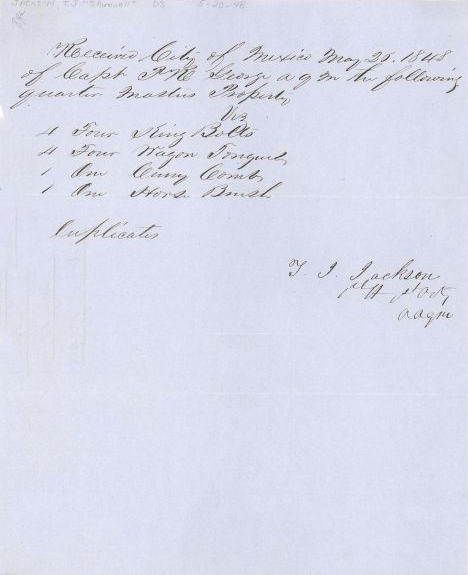 JACKSON, T.J. "Stonewall" DS 5-20-48
Received City of Mexico May 20. 1848
of Capt George a q m the following
quarter Masters Property
Viz
4 Four King Bolts
4 Four Wagon Tongues
1 One Curry Comb
1 One Horse Brush
Duplicates
T. J. Jackson
1st Lt 1st Art
a a q m